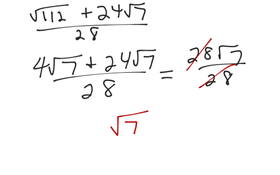 (√112 + 24√7)/28
(4√7 + 24√7)/28 = 28√7/28
√7